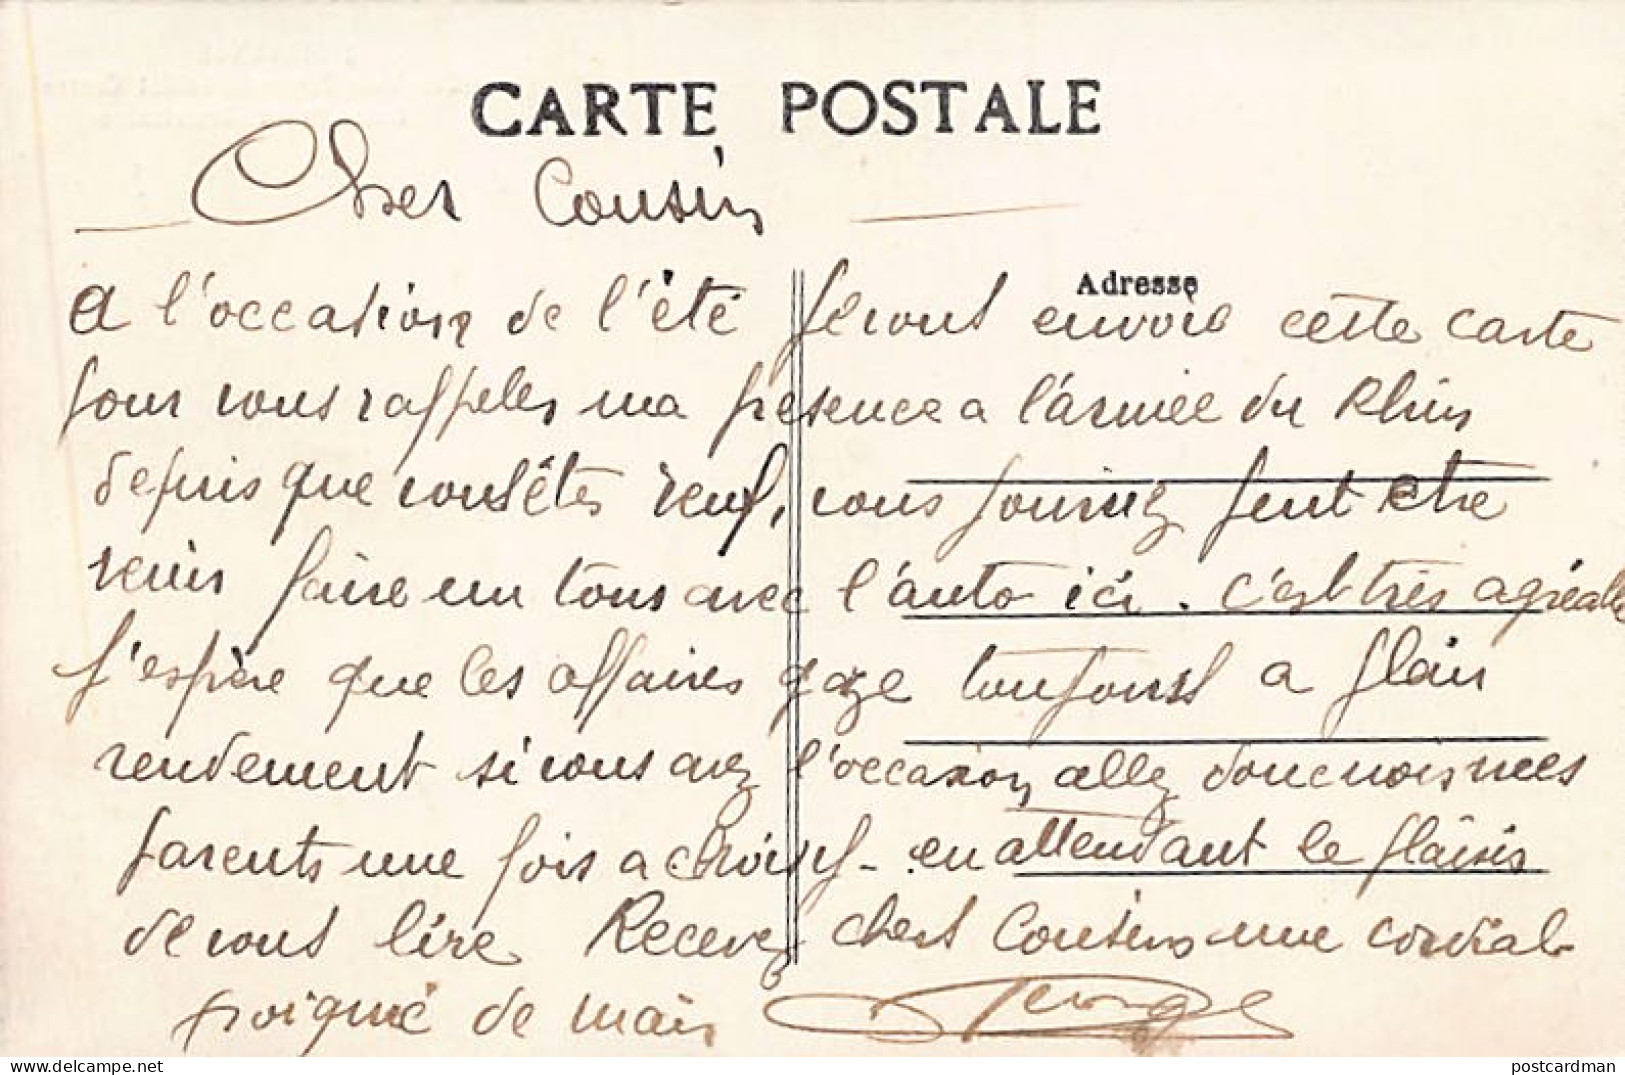 CARTE POSTALE
Cher Cousin
Adresse
A l'occasion de l'été je vous envoie cette carte
pour vous rappeler ma présence a l'armée du Rhin
depuis que vous êtes veuf, vous pourriez peut etre
venir faire un tour avec l'auto ici. c'est très agréable
j'espère que les affaires gaze toujours a plein
rendement si vous avez l'occasion allez donc mes
parents une fois a choisy - en attendant le plaisir
de vous lire Recevez chers Cousins une cordial
poignié de main
postcardman